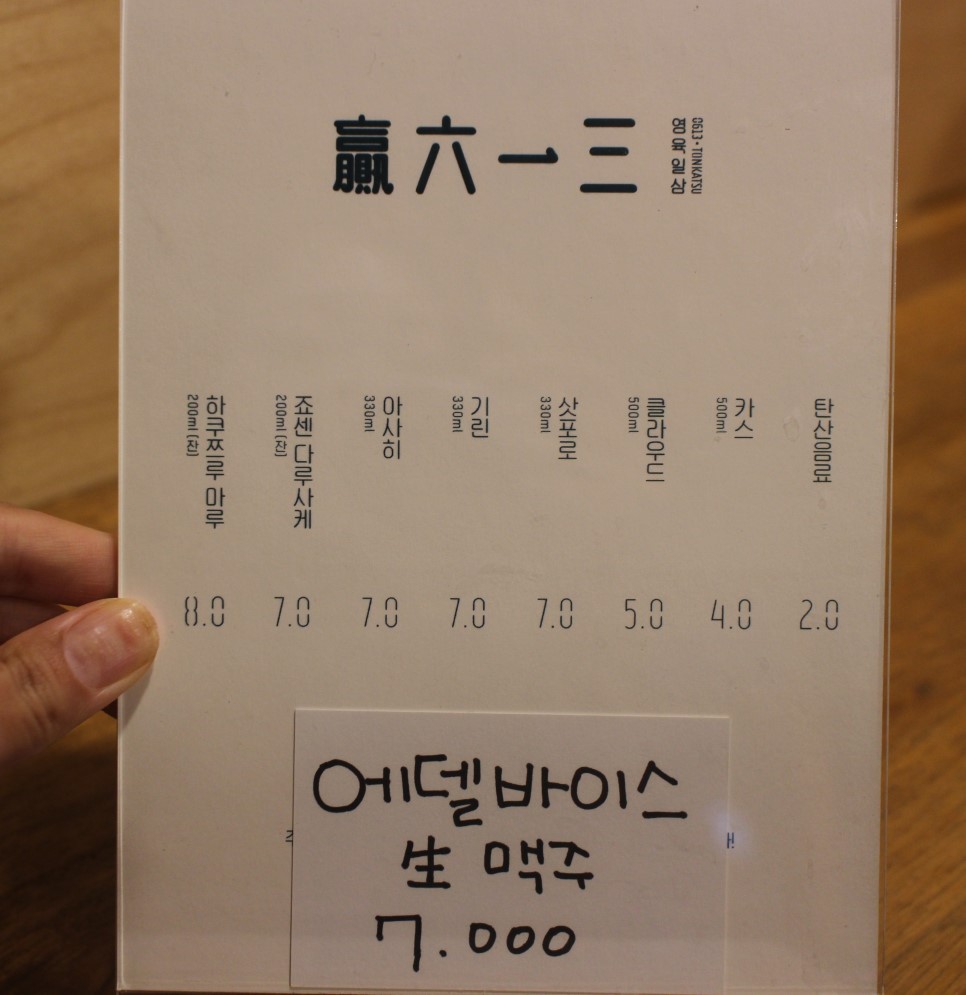 贏六一三
영육일삼
0613·TONKATSU
탄산음료
2.0
카스
500ml
4.0
클라우드
500ml
5.0
삿포로
330ml
7.0
기린
330ml
7.0
아사히
330ml
7.0
죠센 다루사케
200ml (잔)
7.0
하쿠쯔루 마루
200ml (잔)
8.0
에델바이스
生 맥주
7.000